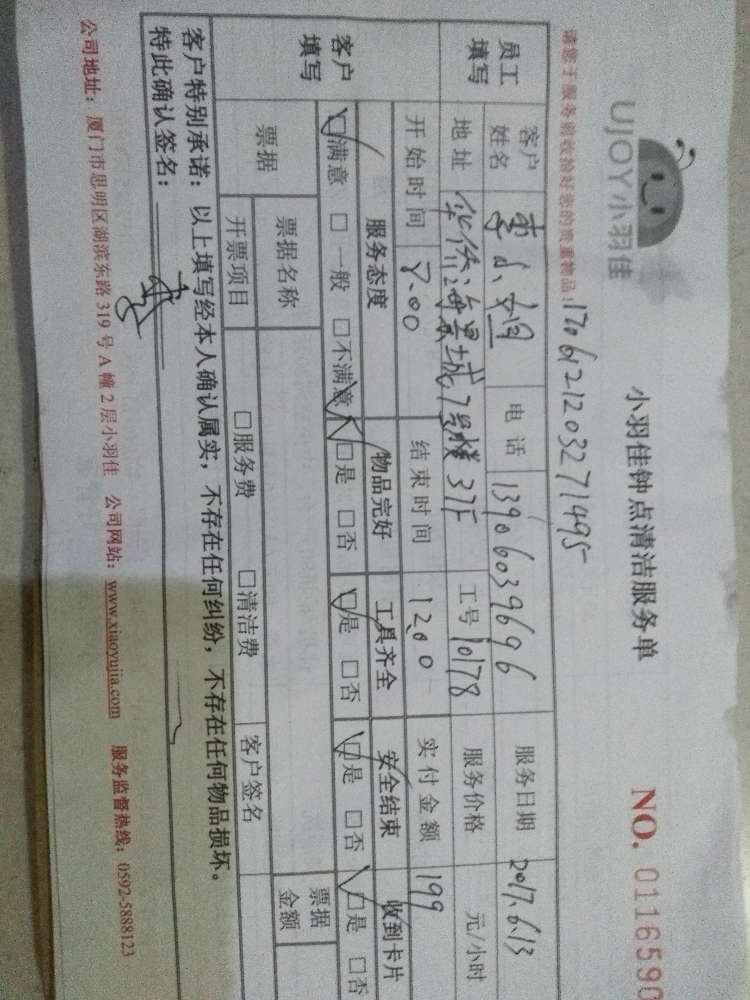 UJOY小羽佳
小羽佳钟点清洁服务单
NO. 0116590
请您于服务前收拾好您的贵重物品!
1706121203271495
员工填写
客户姓名 电话 13906039696 服务日期 2017.6.13
地址 华侨海景城7号楼37F 工号 10178 服务价格 元/小时
开始时间 8.00 结束时间 12.00 实付金额 199
客户填写
服务态度 物品完好 工具齐全 安全结束 收到卡片
☑满意 □一般 □不满意 ☑是 □否 ☑是 □否 ☑是 □否 ☑是 □否
票据 票据名称 票据金额
开票项目 □服务费 □清洁费 客户签名
客户特别承诺:以上填写经本人确认属实,不存在任何纠纷,不存在任何物品损坏。
特此确认签名:
公司地址:厦门市思明区湖滨东路319号A幢2层小羽佳 公司网站:www.xiaoyujia.com 服务监督热线:0592-5888123